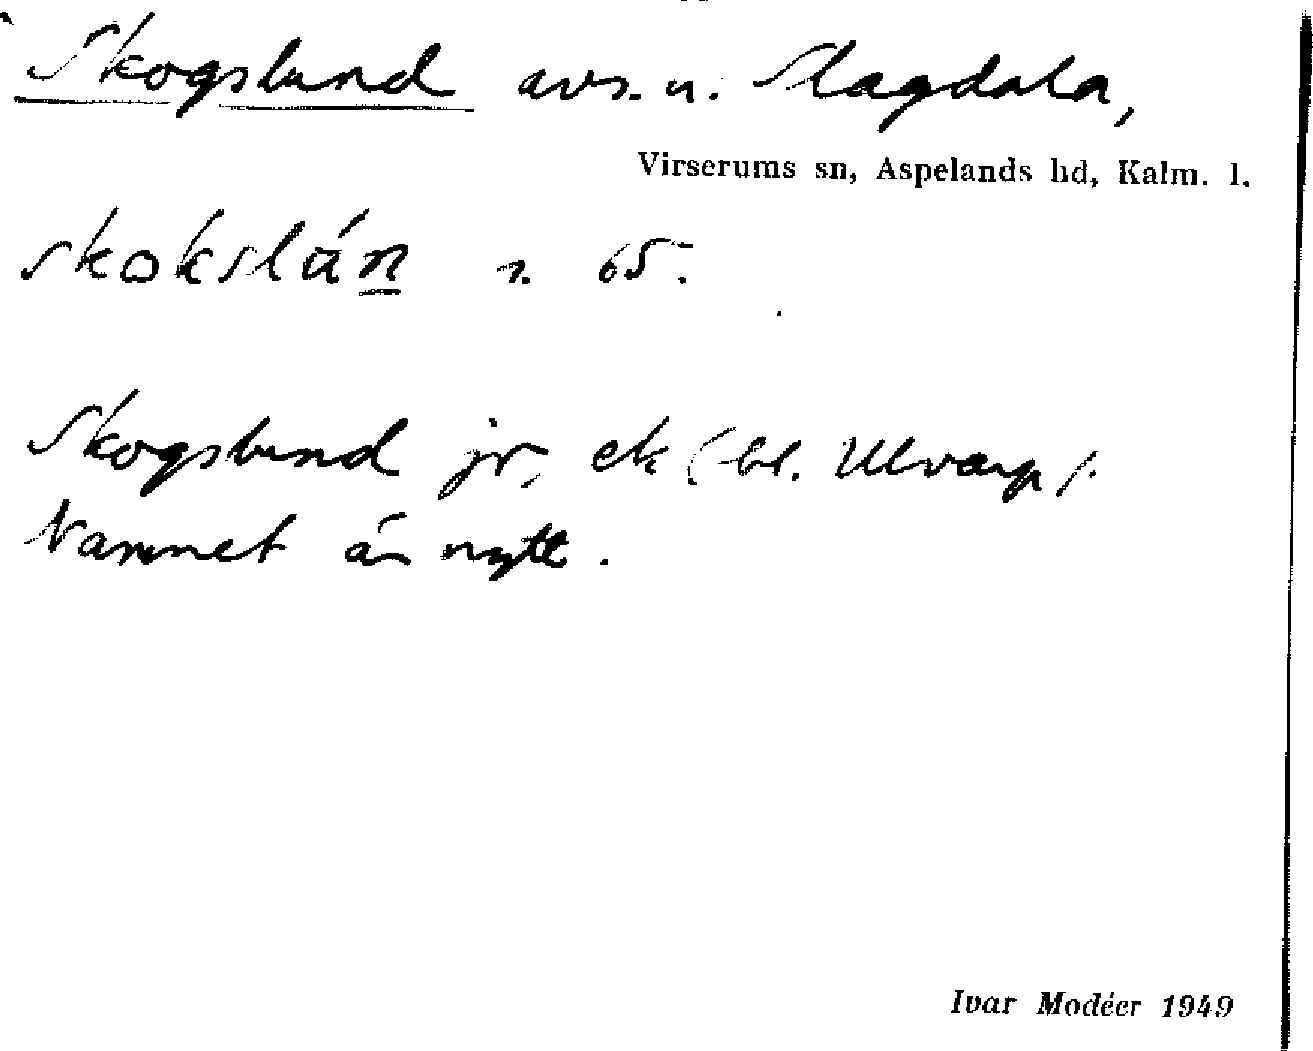 Skogslund avs. u. Slagdala,
Virserums sn, Aspelands hd, Kalm. l.
skokslún r. 65.
Skogslund jr, ek (bl. Ulvarp).
Namnet är nytt.
Ivar Modéer 1949